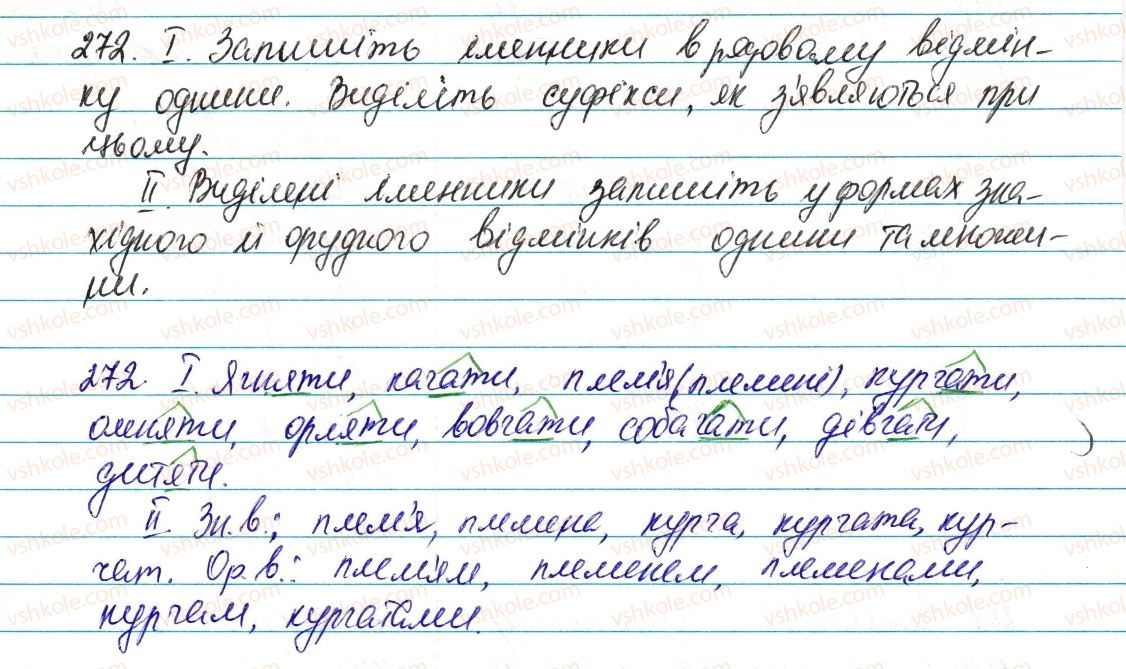 272. I. Запишіть іменники в родовому відмін-
ку однини. Виділіть суфікси, як з'являються при
цьому.
II. Виділені іменники запишіть у формах зна-
хідного й орудного відмінків однини та множи-
ни.
272. I. Ягняти, качати, плем'я (племені), курчати,
ошняти, орляти, вовчати, собачати, дівчати,
дитяти.
II. Зн. в.: плем'я, племена, курча, курчата, кур-
чат. Ор. в.: плем'ям, племенем, племенами,
курчам, курчатами.